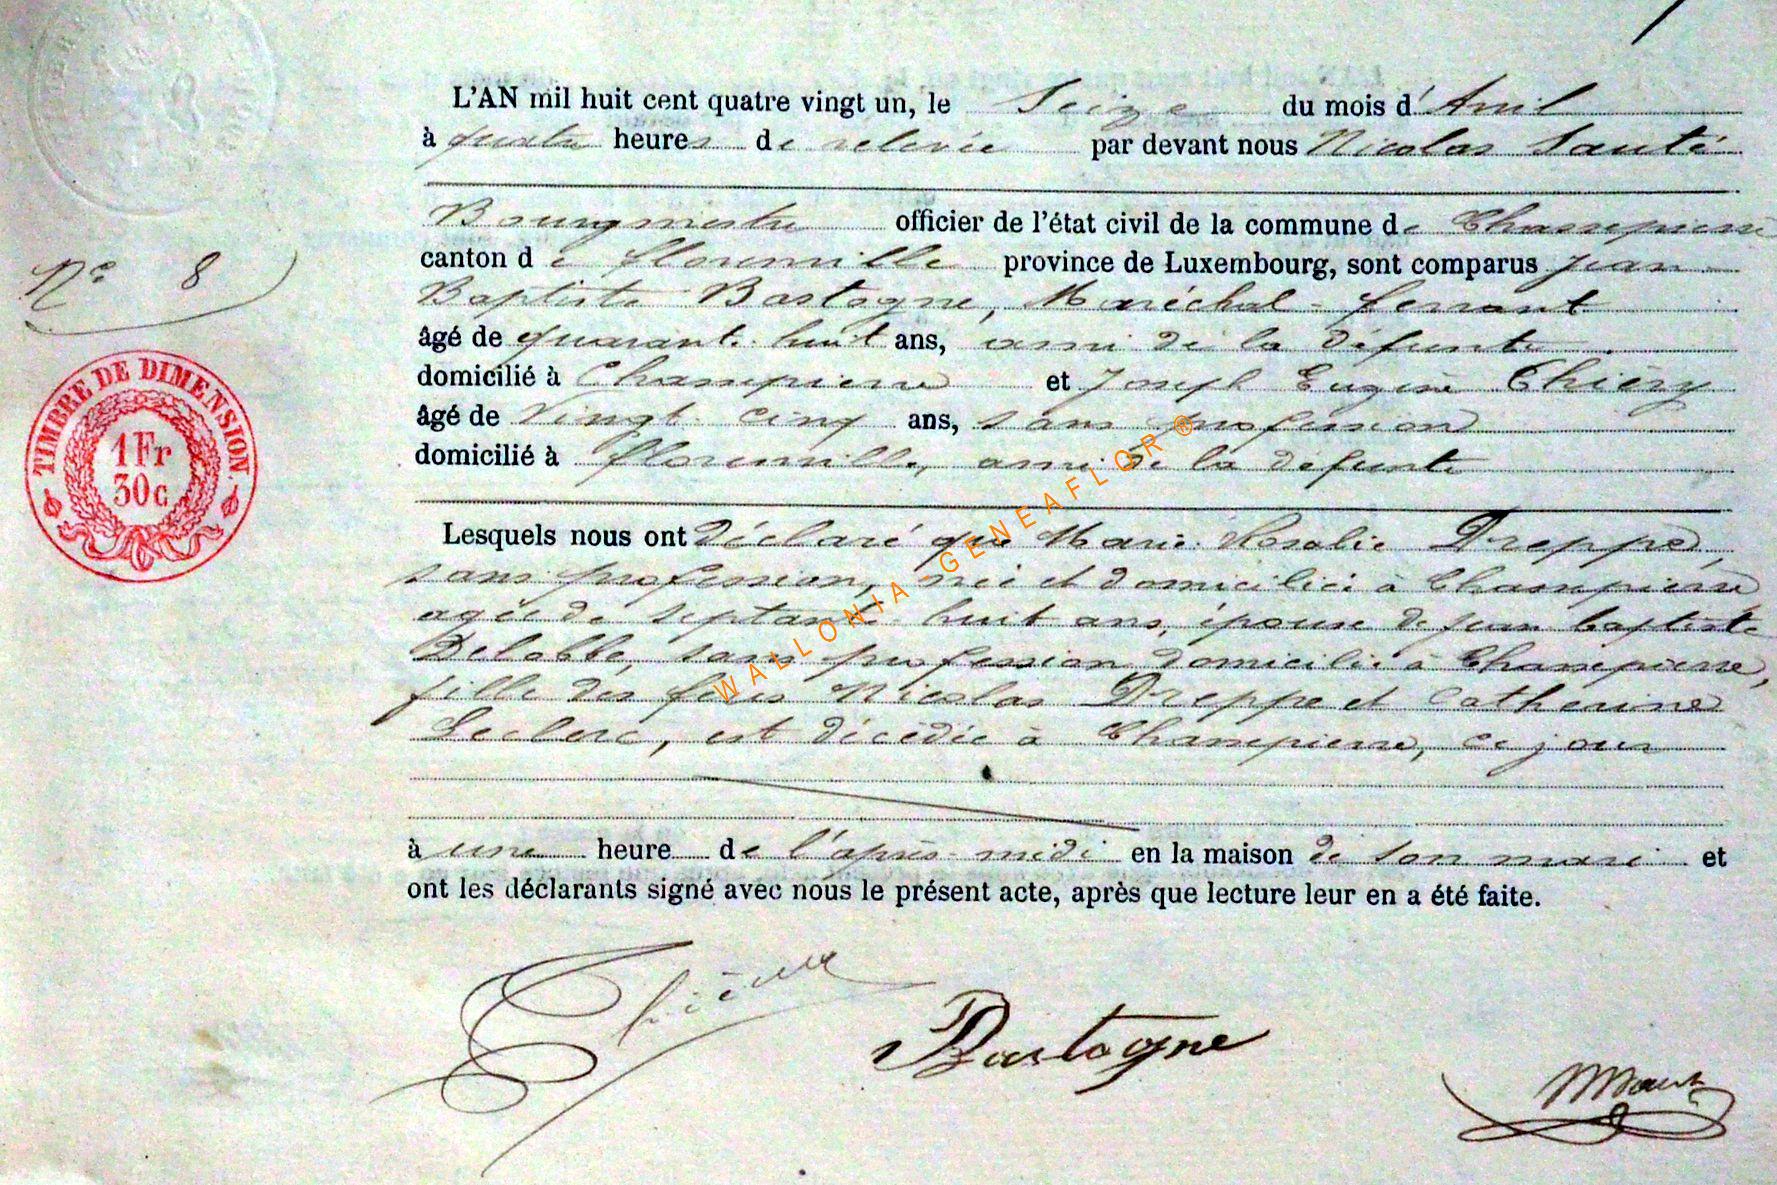 L'AN mil huit cent quatre vingt un, le Seize du mois d'Avril
à quatre heures de relevée par devant nous Nicolas Santé
Bourgmestre officier de l'état civil de la commune de Chassepierre
canton de florenville province de Luxembourg, sont comparus Jean
Baptiste Bastogne, Maréchal-ferrant
âgé de quarante huit ans, ami de la défunte
domicilié à Chassepierre et Joseph Eugène Thiéry
âgé de Vingt cinq ans, sans profession
domicilié à florenville, ami de la défunte
Lesquels nous ont déclaré que Marie Rosalie Dreppe,
sans profession, née et domiciliée à Chassepierre
agée de septante huit ans, épouse de jean baptiste
sans profession domicilié à Chassepierre,
fille des feus Nicolas Dreppe et Catherine
Leclerc, est décédée à Chassepierre, ce jour
à une heure de l'après-midi en la maison de son mari et
ont les déclarants signé avec nous le présent acte, après que lecture leur en a été faite.
N° 8
TIMBRE DE DIMENSION
1 Fr
30 c
WALLONIA - GENEAFLOR ®
Bastogne